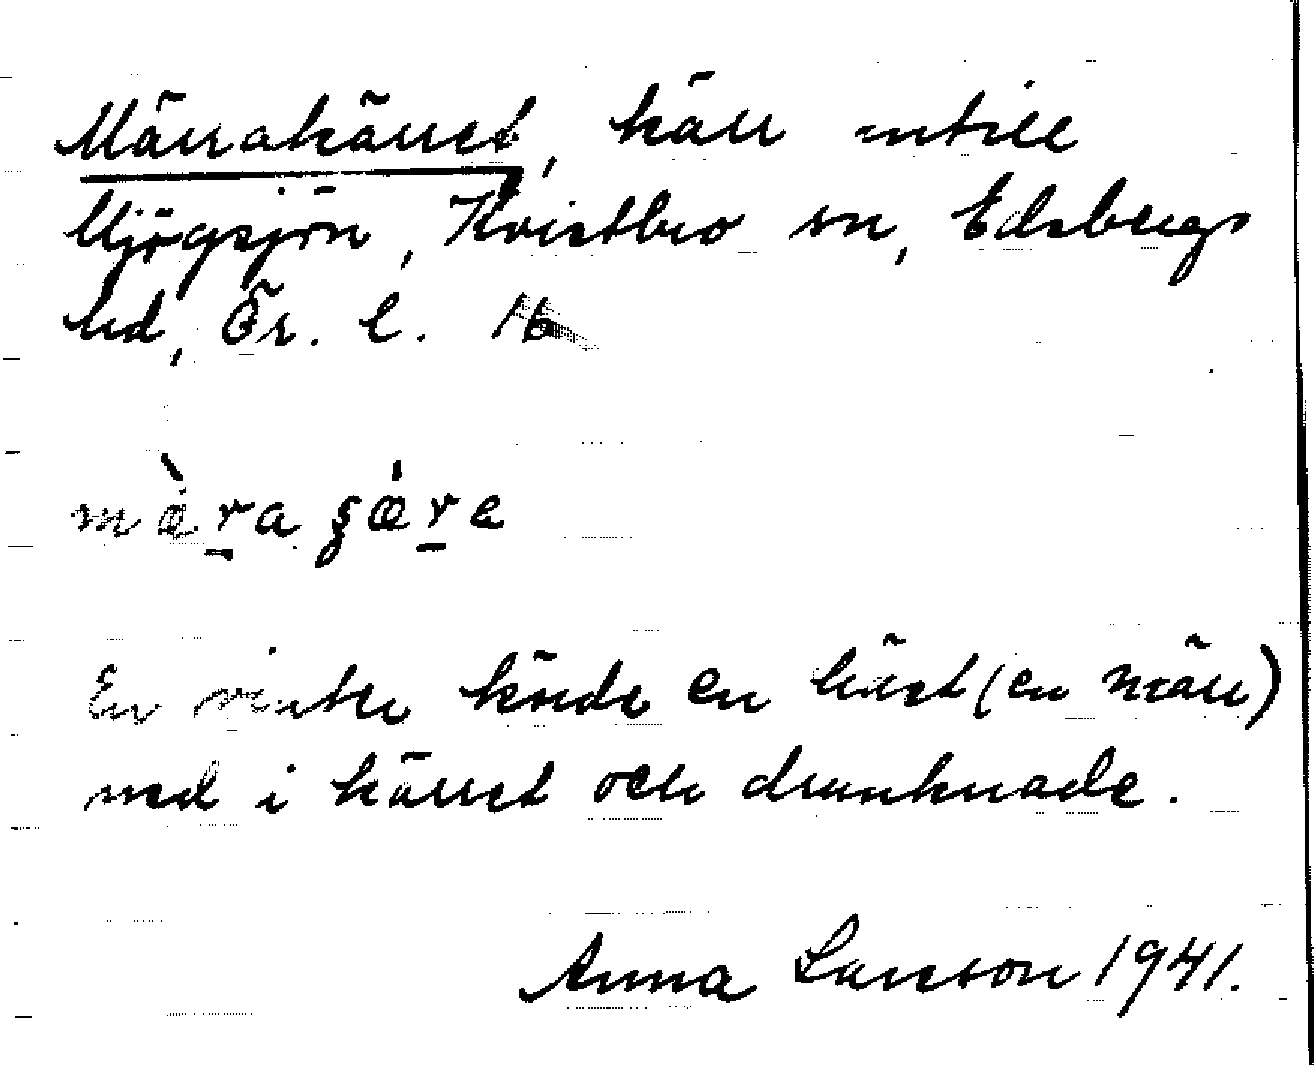 Märrakärret, kärr intill
Mjögsjön, Kvistbro sn, Edsbergs
hd, Ör. l. 16
mæ̀ra ʂǽre
En vinter körde en häst (en märr)
ned i kärret och drunknade.
Anna Larsson 1941.